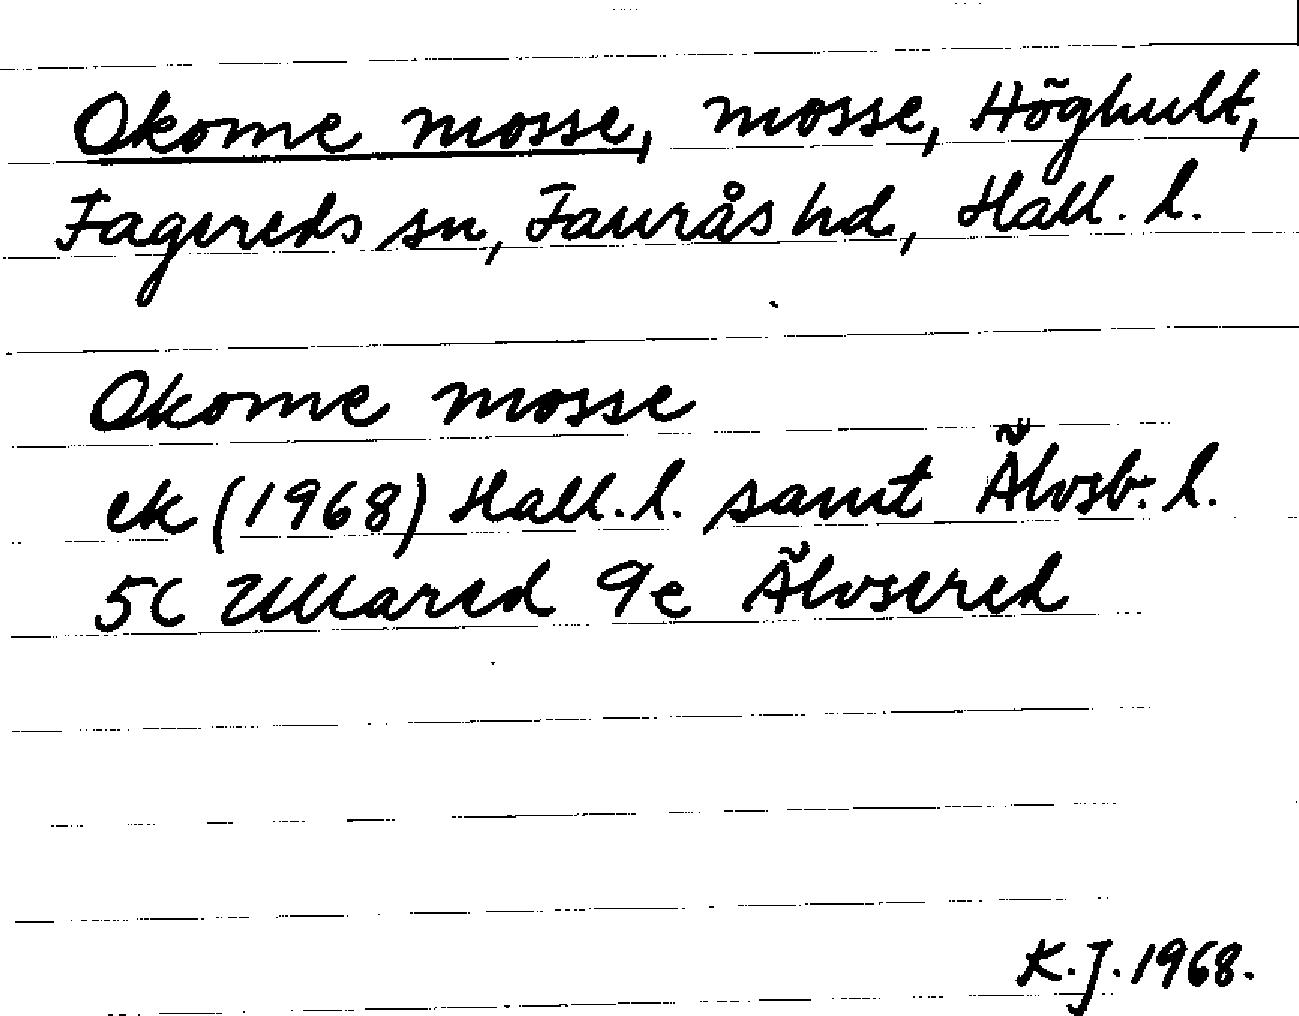 Okome mosse, mosse, Höghult,
Fagereds sn, Faurås hd, Hall. l.
Okome mosse
ek (1968) Hall. l. samt Älvsb. l.
5C Ullared 9e Älvsered
K.J. 1968.